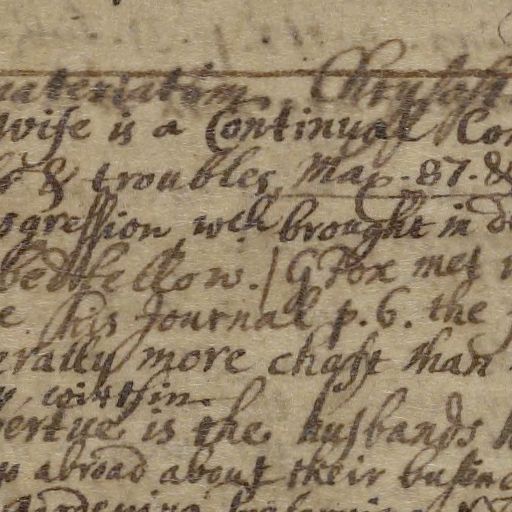 materiatim Chrysost
wife is a Continual Com
& troubles Max. 87. &
ogression wch brought in de
bedfellow. | G Fox met
his Journal p. 6. the
erally more chast than
within
vertue is the husbands
abroad about their busine